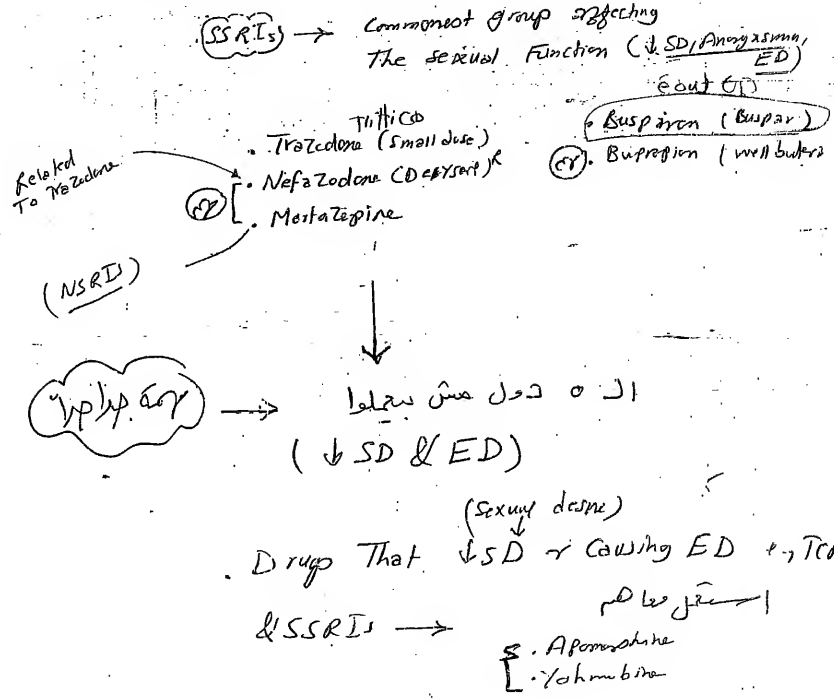 SSRIs → Commonest group affecting
The sexual Function (↓ SD, Anorgasmia,
ED)
Trittico
. Trazodone (small dose)
. Nefazodone (Deryserp)R
. Mertazepine
Related
To Trazodone
(NSRIs)
. Buspiron (Buspar)
. Bupropion (wellbutrin
مهمة جدا جدا →
الـ ٥ دول مش بيعملوا
(↓ SD & ED)
(Sexual desire)
. Drugs That ↓SD or Causing ED e., TCA
& SSRIs →
استعمل معاهم
. Apomorphine
. Yohimbine